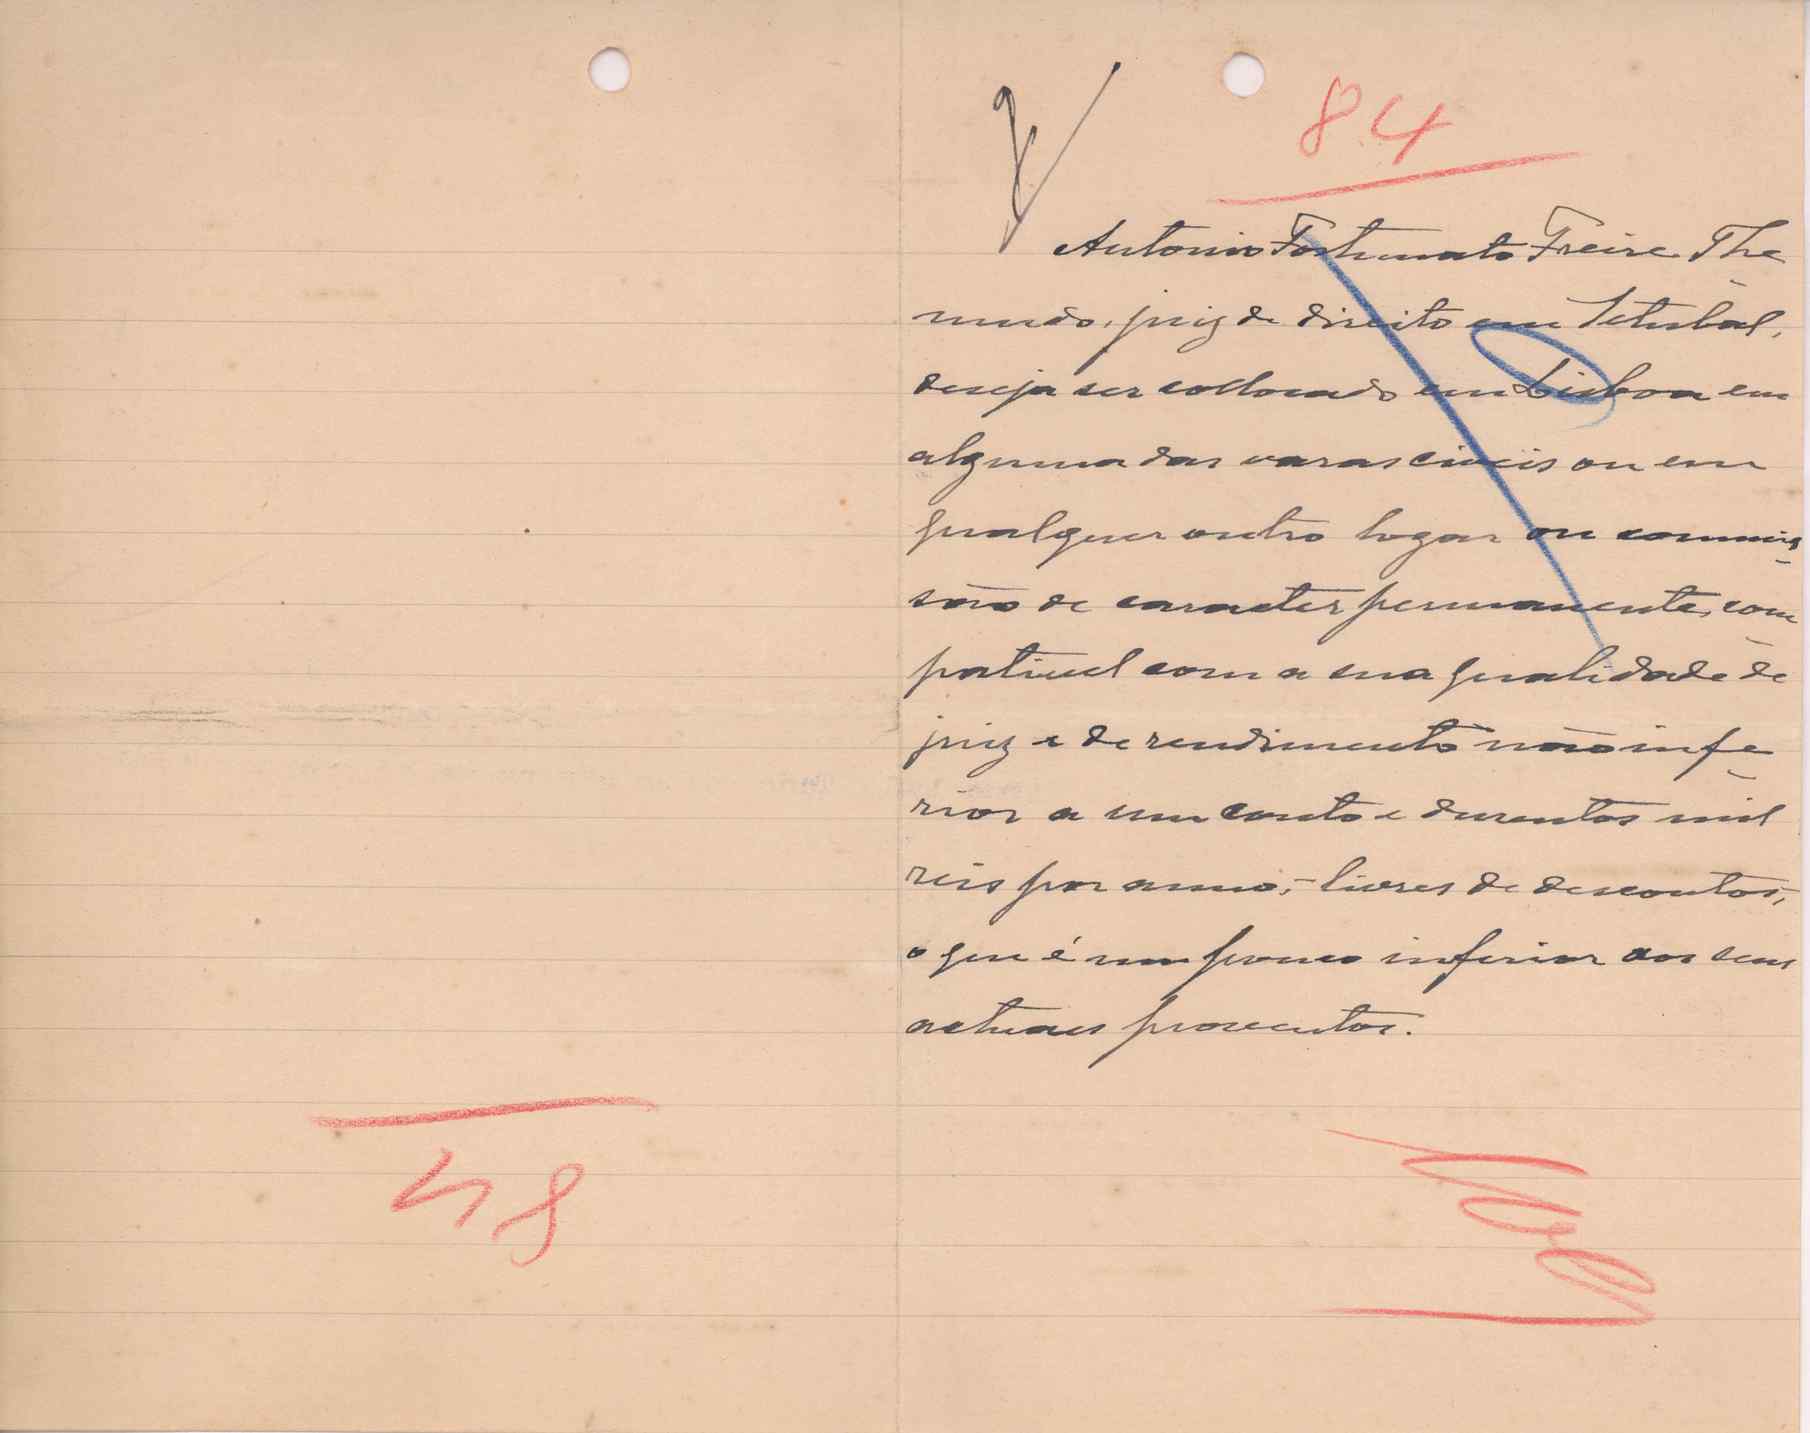 84
Antonio Fortunato Freire The-
mudo, juiz de direito em Setubal,
deseja ser collocado em Lisboa em
alguma das varas civeis ou em
qualquer outro logar ou commis-
são de caracter permanente, com-
pativel com a sua qualidade de
juiz e de rendimento não infe-
rior a um conto e duzentos mil
reis por anno, - livres de descontos, -
o que é um pouco inferior aos seus
actuaes proventos.